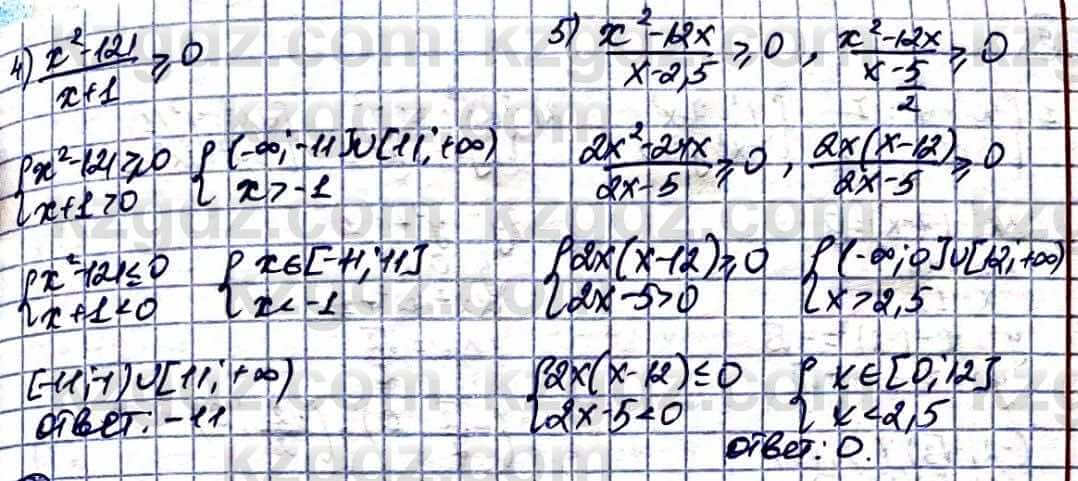 4) (x²-121)/(x+1) ⩾ 0
{x²-121⩾0 {(-∞; -11]∪[11; +∞)
{x+1>0 {x>-1
{x²-121≤0 {x∈[-11; 11]
{x+1<0 {x<-1
[-11; -1)∪[11; +∞)
ответ: -11
5) (x²-12x)/(x-2,5) ⩾ 0, (x²-12x)/(x-5/2) ⩾ 0
(2x²-24x)/(2x-5) ⩾ 0, 2x(x-12)/(2x-5) ⩾ 0
{2x(x-12)⩾0 {(-∞; 0]∪[12; +∞)
{2x-5>0 {x>2,5
{2x(x-12)≤0 {x∈[0; 12]
{2x-5<0 {x<2,5
ответ: 0.
kzgdz.com